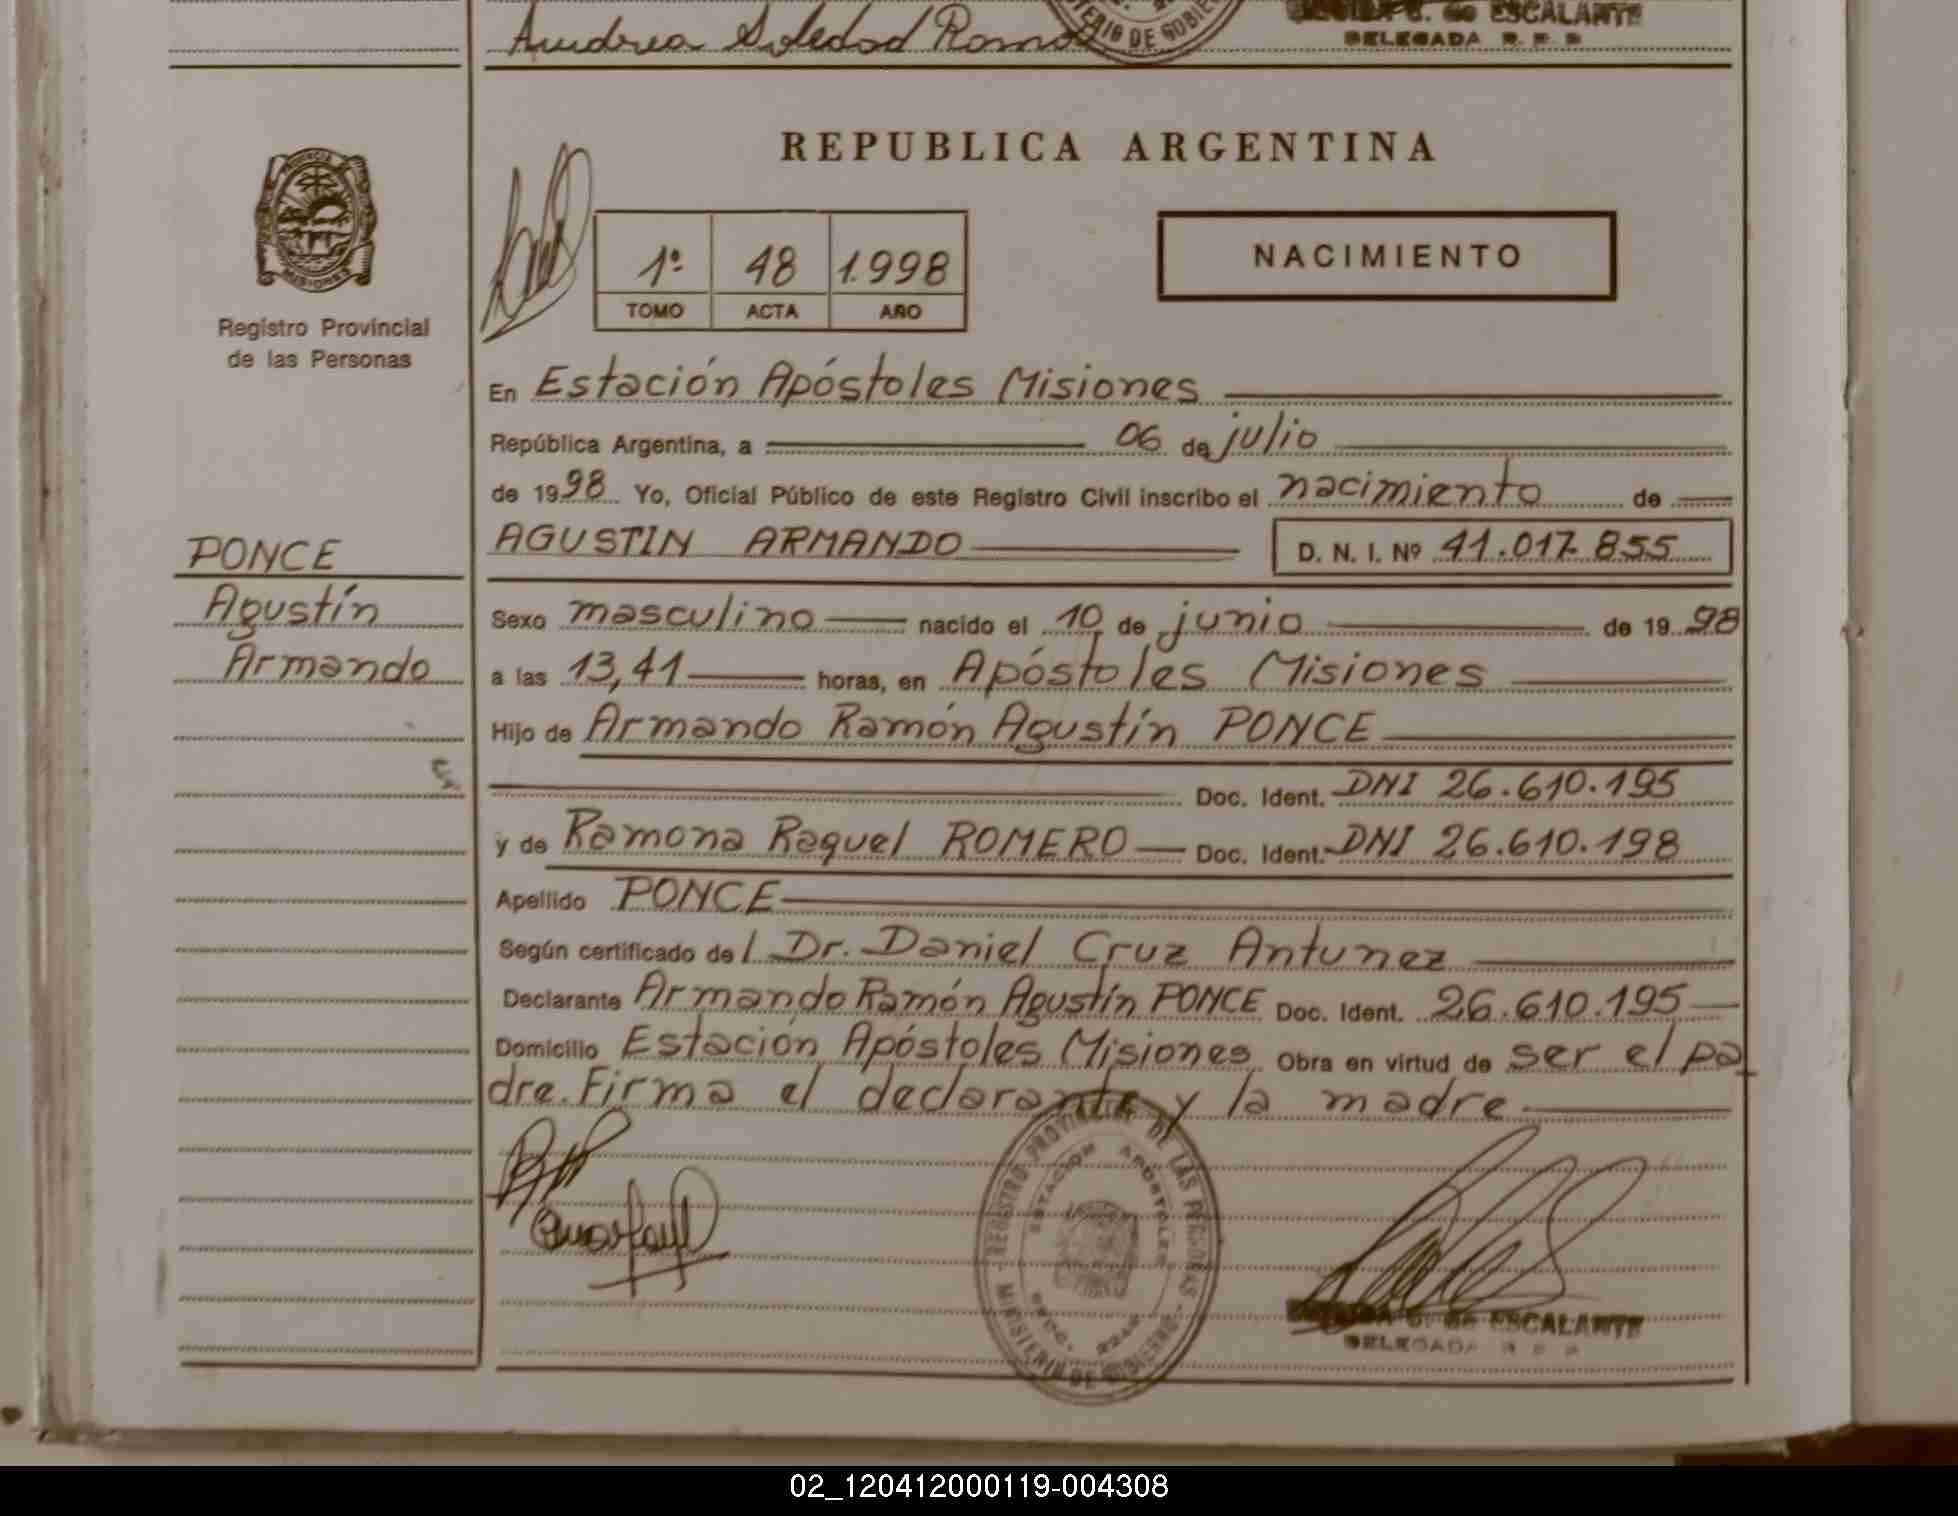 Andrea Soledad
ESCALANTE
DELEGADA R. P. P
REPUBLICA ARGENTINA
1º 48 1.998
TOMO ACTA AÑO
NACIMIENTO
PROVINCIA
MISIONES
Registro Provincial
de las Personas
En Estación Apóstoles Misiones
República Argentina, a 06 de julio
de 1998 Yo, Oficial Público de este Registro Civil inscribo el nacimiento de
AGUSTIN ARMANDO D. N. I. Nº 41.017.855
PONCE
Agustín
Armando
Sexo masculino nacido el 10 de junio de 1998
a las 13,41 horas, en Apóstoles Misiones
Hijo de Armando Ramón Agustín PONCE
Doc. Ident. DNI 26.610.195
y de Ramona Raquel ROMERO Doc. Ident. DNI 26.610.198
Apellido PONCE
Según certificado del Dr. Daniel Cruz Antunez
Declarante Armando Ramón Agustín PONCE Doc. Ident. 26.610.195
Domicilio Estación Apóstoles Misiones Obra en virtud de ser el pa
dre. Firma el declarante y la madre.
REGISTRO PROVINCIAL DE LAS PERSONAS
ESTACION APOSTOLES
MINISTERIO DE GOBIERNO
de ESCALANTE
DELEGADA
02_120412000119-004308